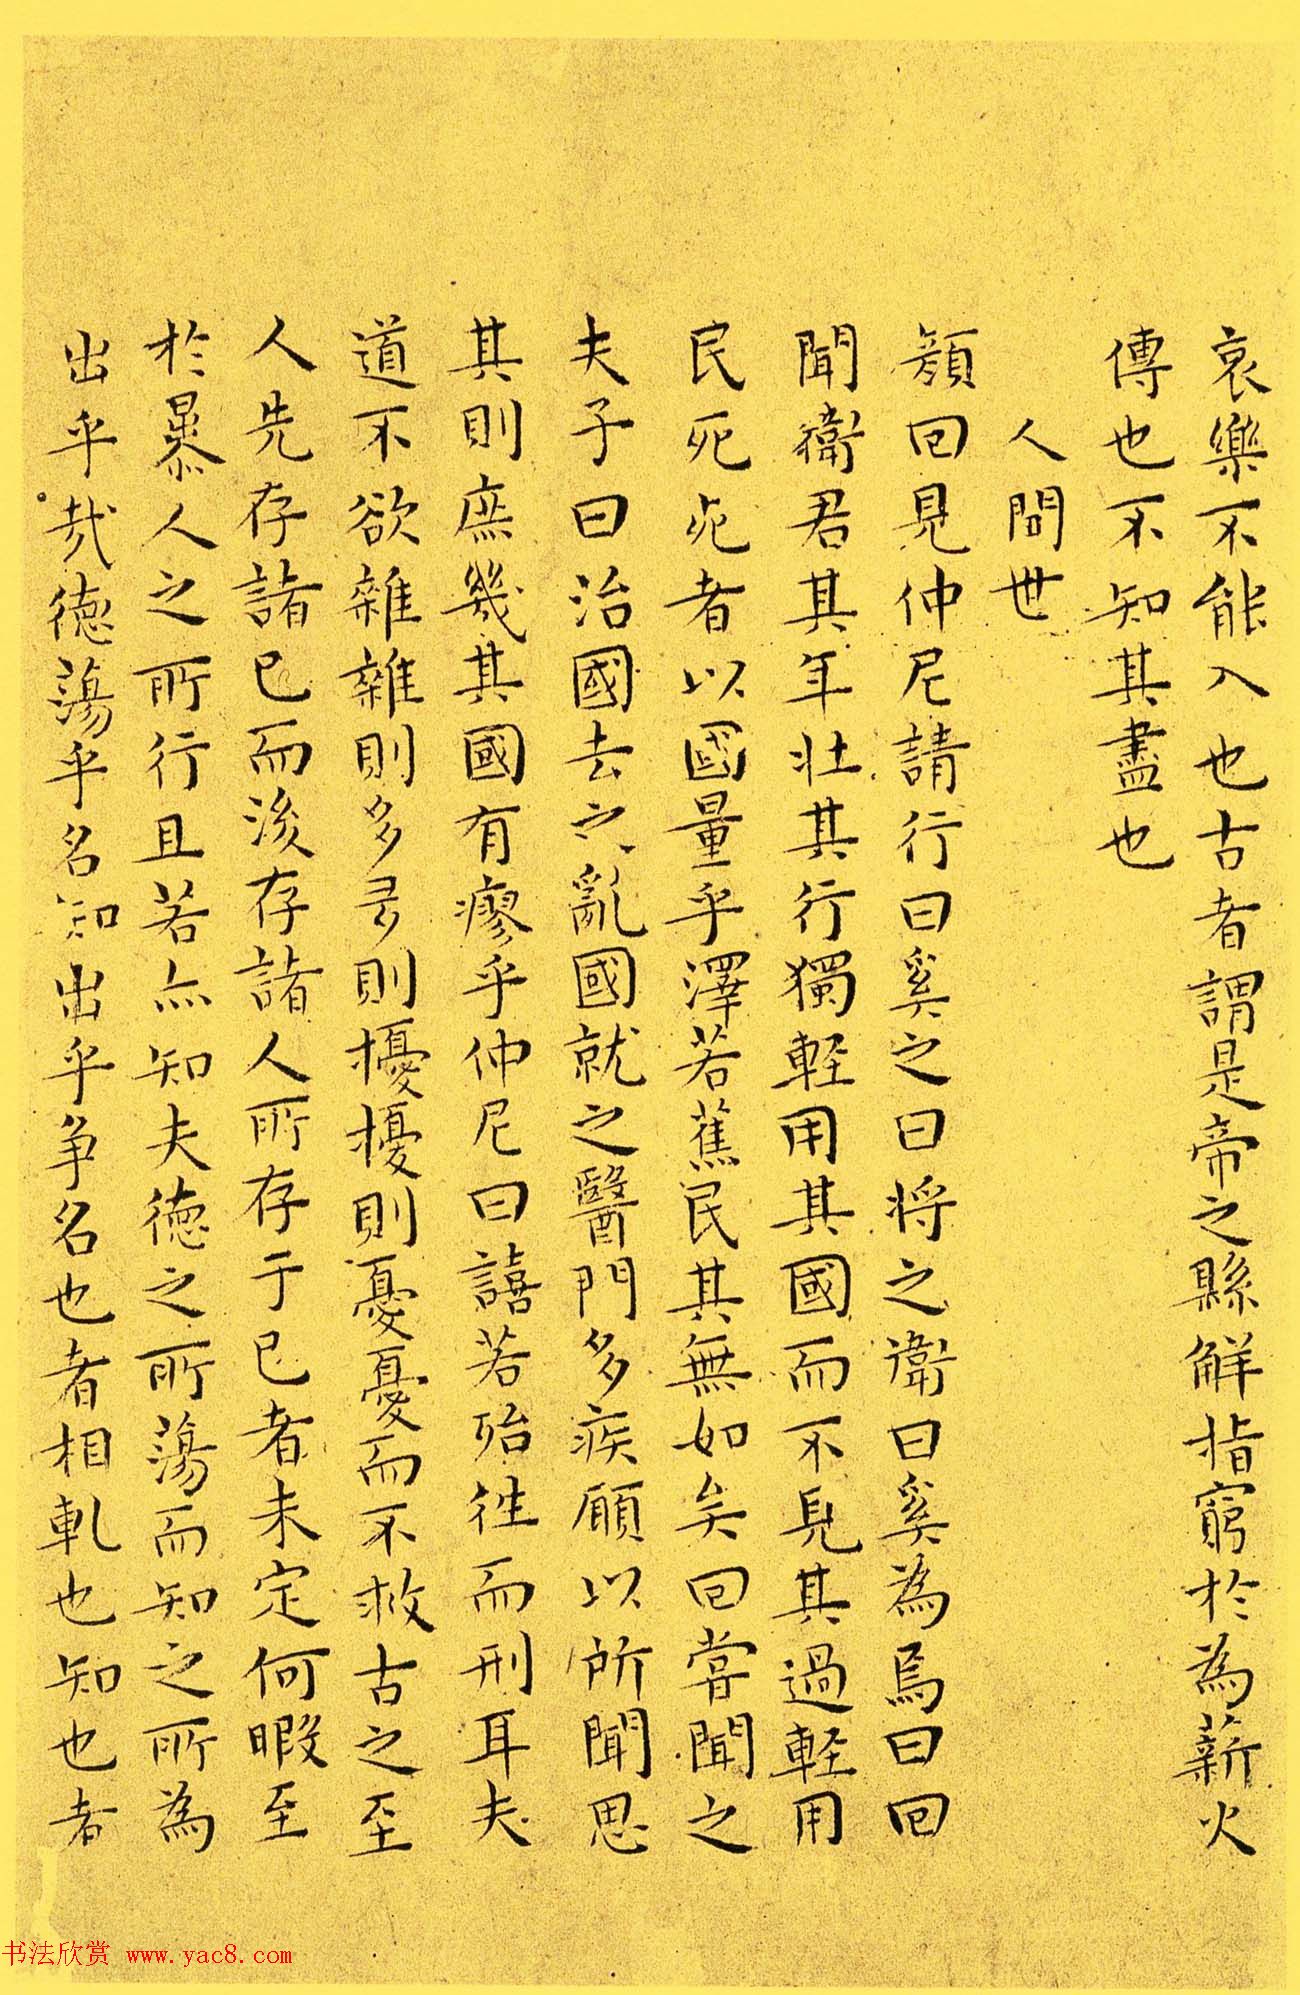 哀樂不能入也古者謂是帝之縣解指窮於為薪火
傳也不知其盡也
人間世
顏回見仲尼請行曰奚之曰将之衛曰奚為焉曰回
聞衛君其年壯其行獨輕用其國而不見其過輕用
民死死者以國量乎澤若蕉民其無如矣回嘗聞之
夫子曰治國去之亂國就之醫門多疾願以所聞思
其則庶幾其國有瘳乎仲尼曰譆若殆往而刑耳夫
道不欲雜雜則多多則擾擾則憂憂而不救古之至
人先存諸己而後存諸人所存于己者未定何暇至
於暴人之所行且若亦知夫德之所蕩而知之所為
出乎哉德蕩乎名知出乎争名也者相軋也知也者
书法欣赏 www.yac8.com